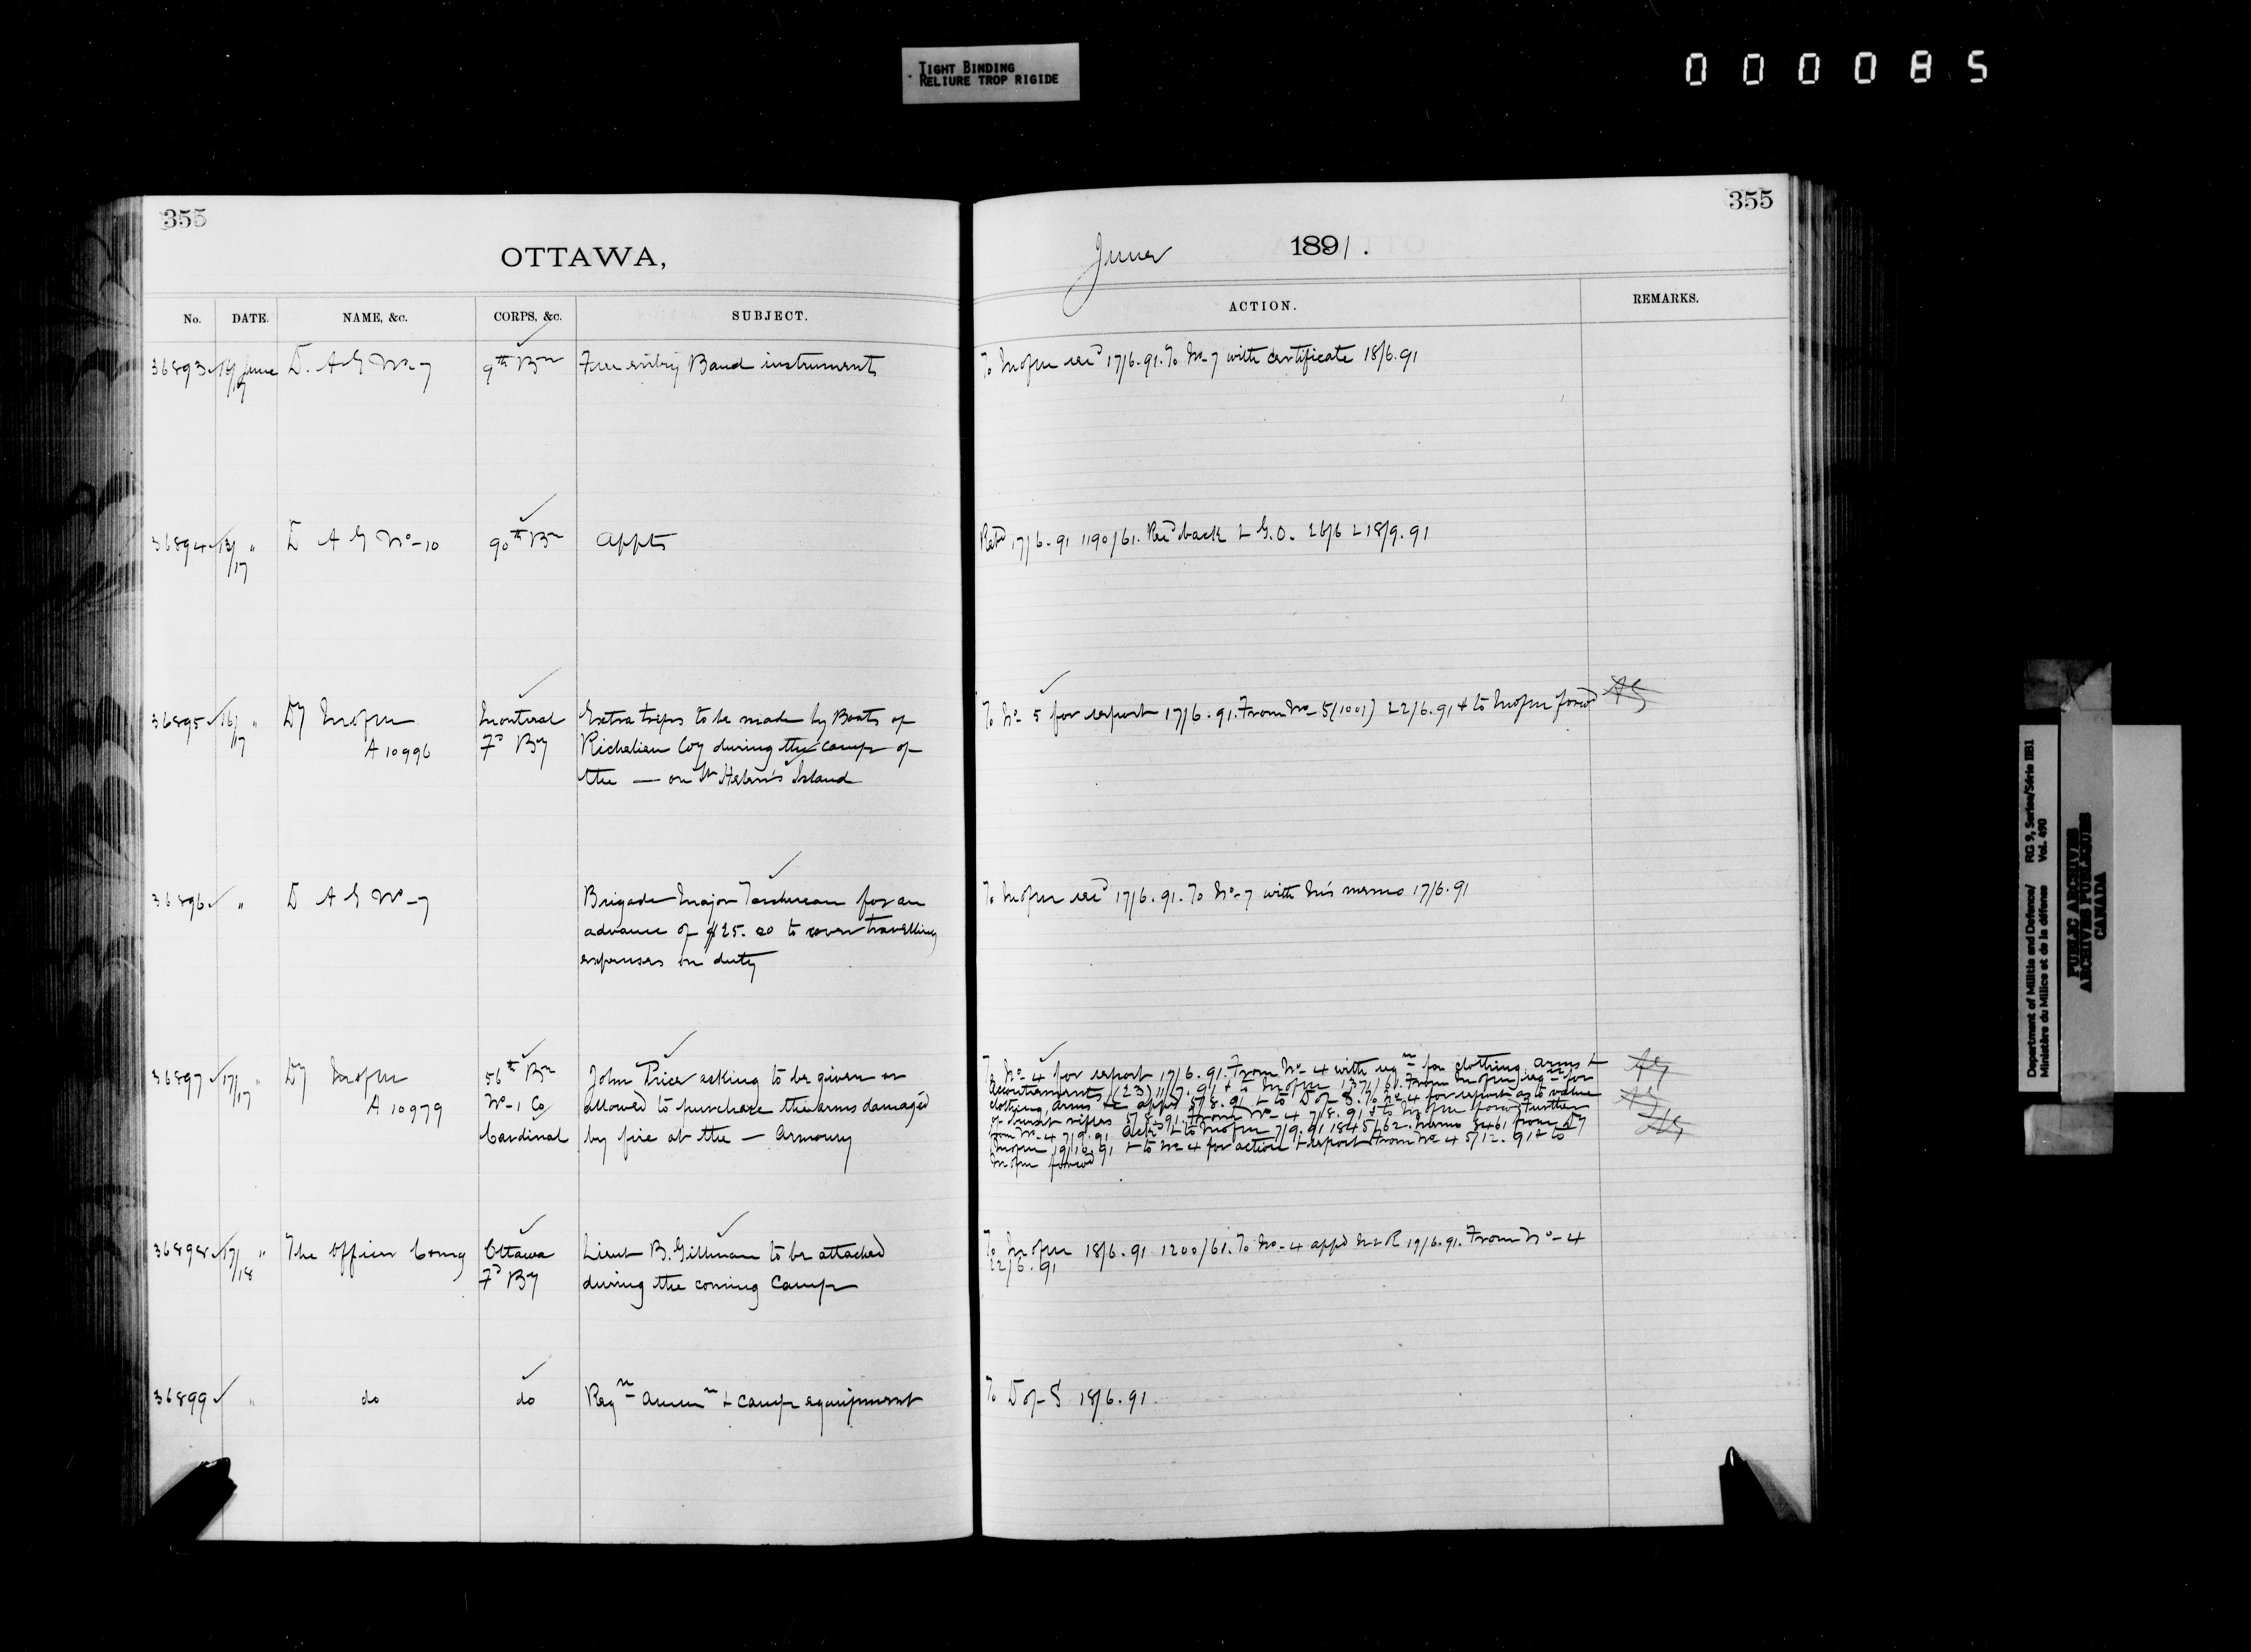 TIGHT BINDING
RELIURE TROP RIGIDE
000085
355
OTTAWA,
No. DATE. NAME, &c. CORPS, &c. SUBJECT.
36893 16/17 June D. A G No 7 9th Bn Free entry Band instruments
36894 13/17 " D A G No 10 90th Bn Appts
36895 16/17 " Dy Mofm Montreal Extra trips to be made by Boats of
A 10996 Fd By Richelieu Coy during the camp of
the — on St Helen's Island
36896 " D A G No 7 Brigade Major for an
advance of $25.00 to cover travelling
expenses on duty
36897 17/17 " Dy Mofm 56th Bn John Price asking to be given or
A 10979 No 1 Co allowed to purchase the arms damaged
Cardinal by fire at the — Armoury
36898 17/18 " The Officer Comg Ottawa Lieut B. Gillman to be attached
Fd By during the coming Camp
36899 " do do Reqn Ammn & camp equipment
355
June 1891.
ACTION. REMARKS.
To Mofm recd 17/6.91. To No 7 with certificate 18/6.91
Retd 17/6.91 1190/61. Recd back & G.O. 26/6 & 18/9.91
To No 5 for report 17/6.91. From No 5 (1001) 22/6.91 & to Mofm forwd AG
To Mofm recd 17/6.91. To No 7 with his memo 17/6.91
To No 4 for report 17/6.91. From No 4 with reqn for clothing, arms &
Accoutrements (23) 11/7.91 & to Mofm 1371/61. From Mofm reqn for
clothing, arms &c appd 5/8.91 & to D of S. To No 4 for report as to value
of rifles 5/8.91. From No 4 7/8.91 & to Mofm forwd Further
from No 4 7/9.91 ackd & to Mofm 7/9.91 1845/62. Memo 8461 from Dy
Mofm 19/10.91 & to No 4 for action & report From No 4 5/12.91 & to
Mofm forwd
AG
AG
To Mofm 18/6.91 1200/61. To No 4 appd 19/6.91. From No 4
22/6.91
To D of S 18/6.91.
Department of Militia and Defence/ RG 9, Series/Série IIB1
Ministère du Milice et de la défense Vol. 490
PUBLIC ARCHIVES
ARCHIVES PUBLIQUES
CANADA